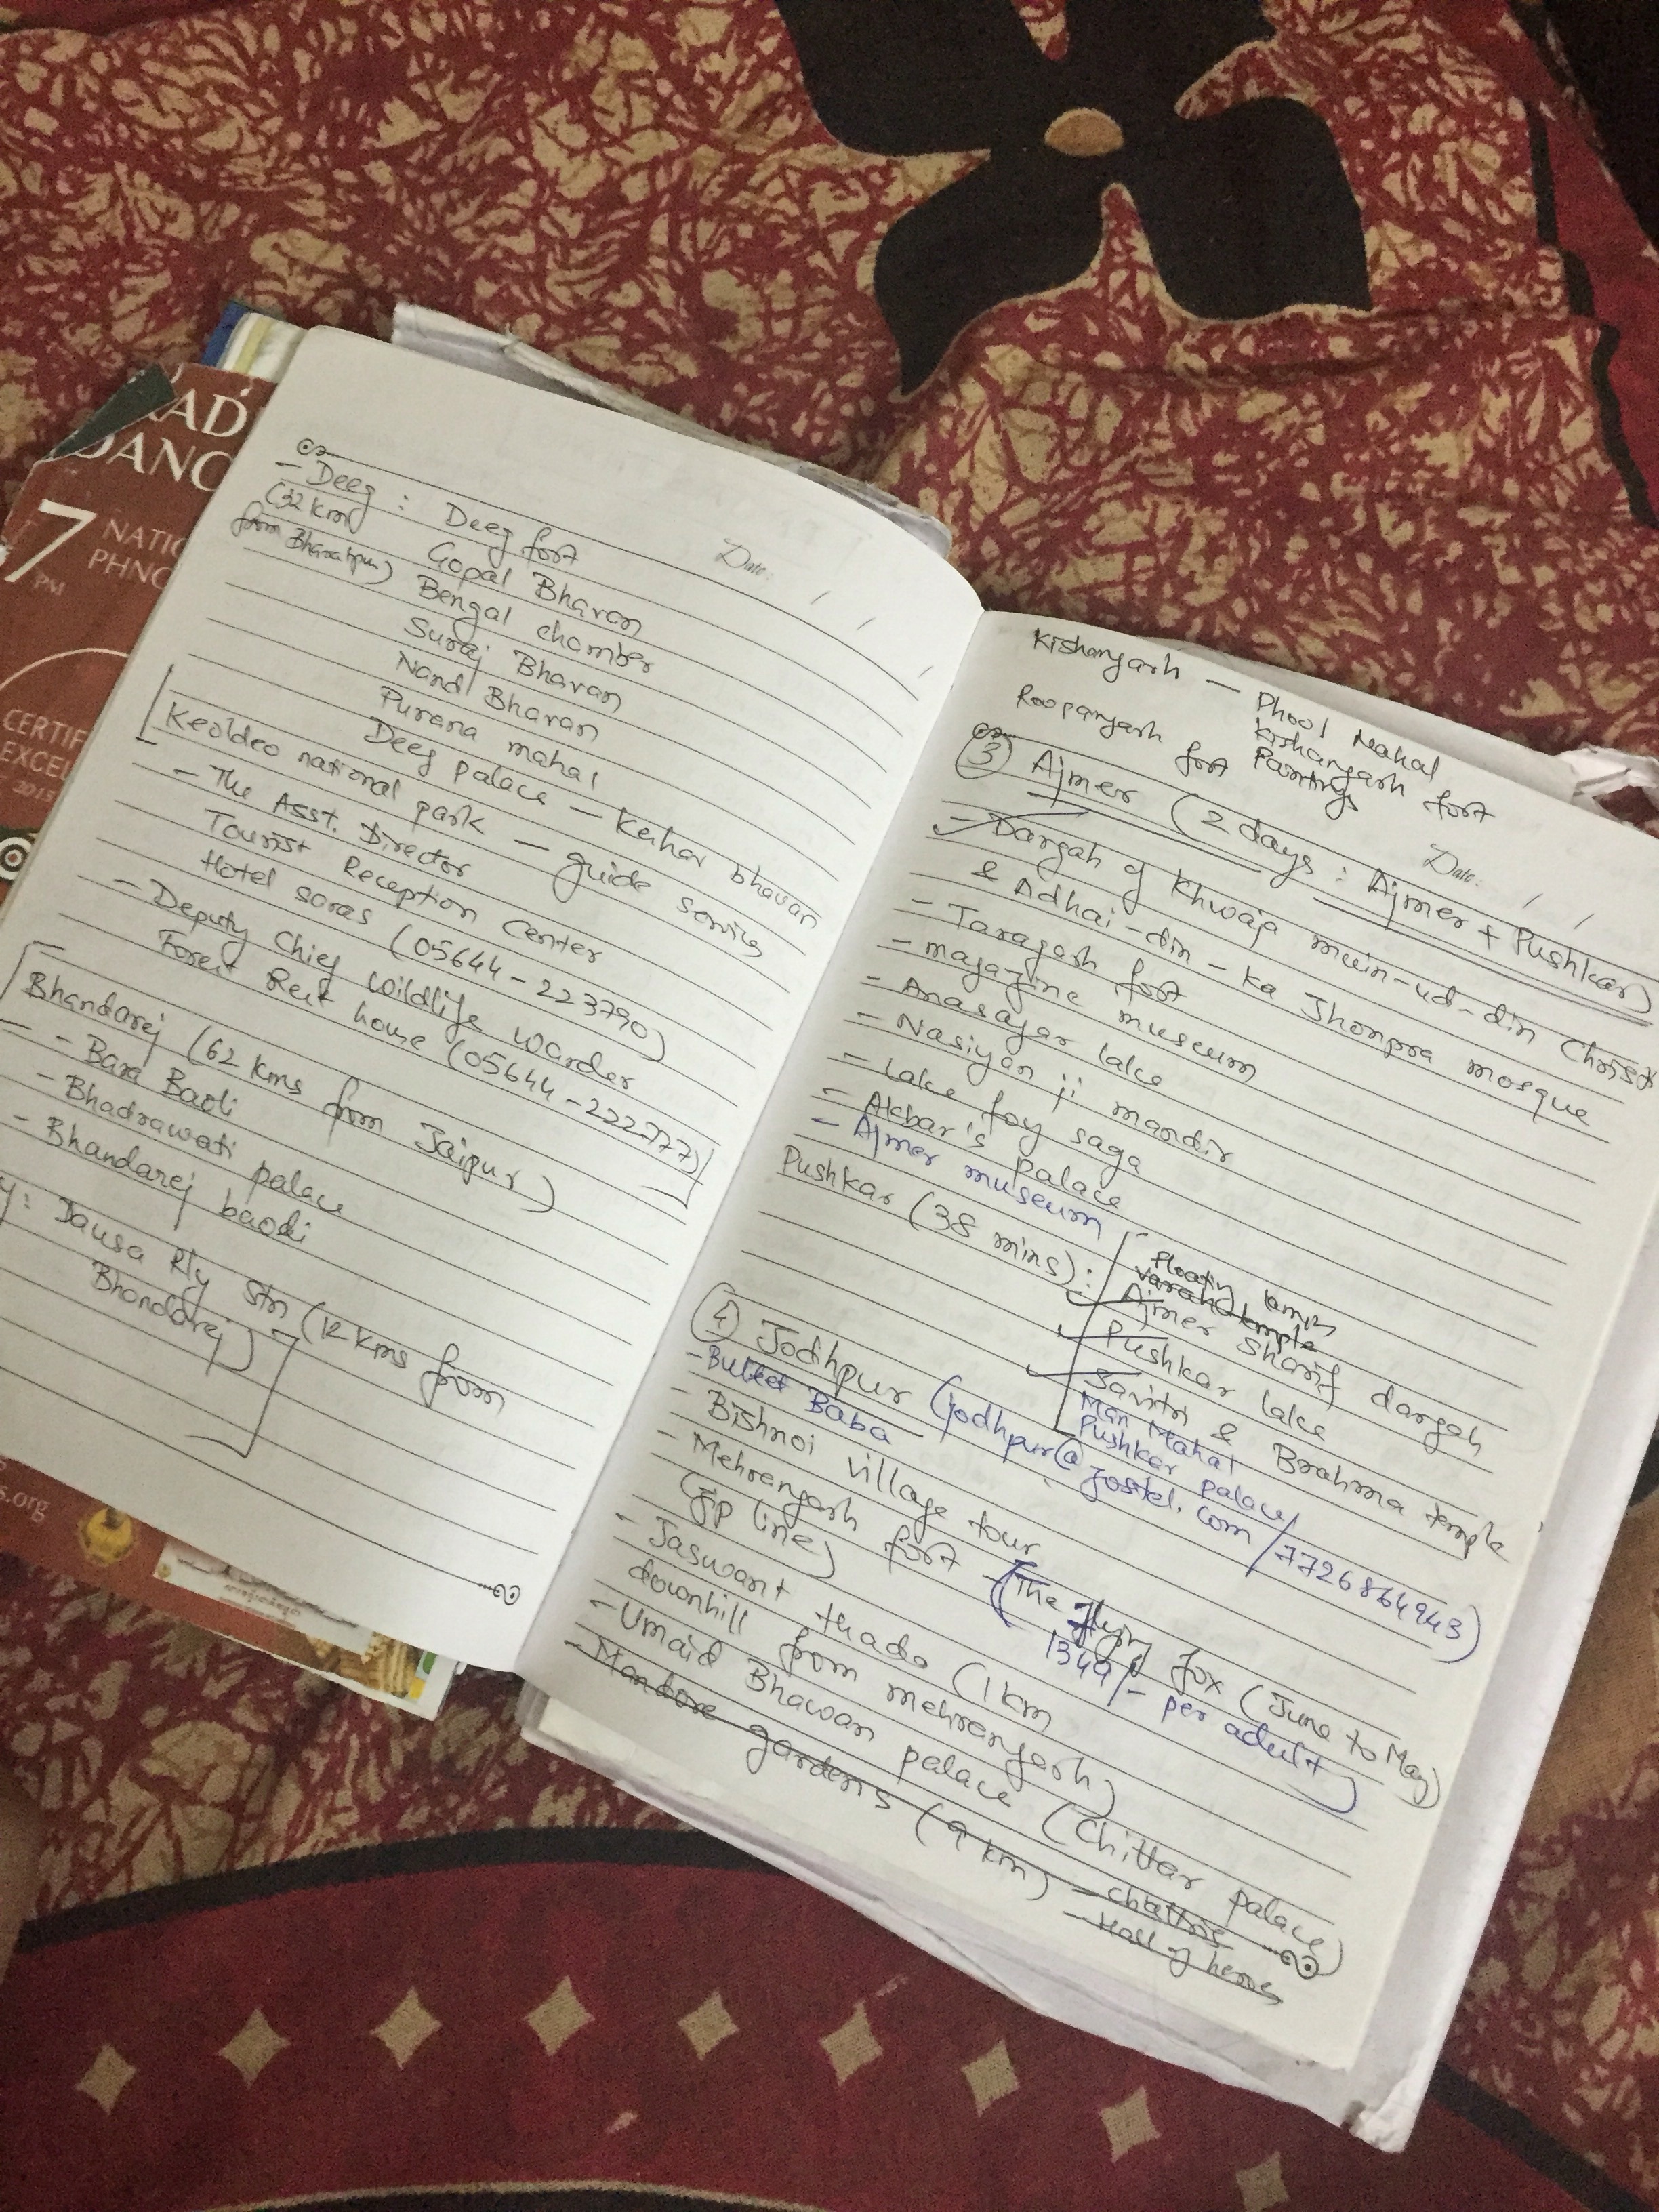 RAD
DANC
7
PM
NATIO
PHNO
CERTIF
EXCEL
2015
s.org
- Deeg : Deeg fort
(32 km
from Bharatpur)
Date:
Gopal Bhavan
Bengal chamber
Suraj Bhavan
Nand Bhavan
Purana mahal
Deeg palace - Keshav bhavan
Keoldeo national park - guide service
- The Asst. Director
Tourist Reception Center
Hotel saras (05644-223790)
- Deputy Chief Wildlife Warder
Forest Rest house (05644-222777)
Bhandarej (62 kms from Jaipur)
- Bara Baoli
- Bhadrawati palace
- Bhandarej baodi
y: Dausa Rly Stn (12 kms from
Bhandarej)
Kishangarh - Phool Mahal
Kishangarh fort
Paintings
Roopangarh fort
Date:
3 Ajmer (2 days : Ajmer + Pushkar)
- Dargah of Khwaja muin-ud-din Chrisst
& Adhai-din-ka Jhonpra mosque
- Taragarh fort
- magazine museum
- Anasagar lake
- Nasiyan ji mandir
- Lake foy saga
- Akbar's palace
- Ajmer museum
Pushkar (38 mins) :
Floating lamps
Varaha temple
Ajmer Sharif dargah
Pushkar lake
Savitri & Brahma temple
Man Mahal
Pushkar palace
4 Jodhpur (jodhpur@zostel.com/7726864943)
- Bullet Baba
- Bishnoi village tour
- Mehrengarh fort - (The flying fox (June to May)
(zip line)
1349/- per adult)
- Jaswant thada (1 km
downhill from mehrengarh)
- Umaid Bhawan palace (Chittar palace)
- Mandore gardens (9 km) - chattris
- Hall of heroes